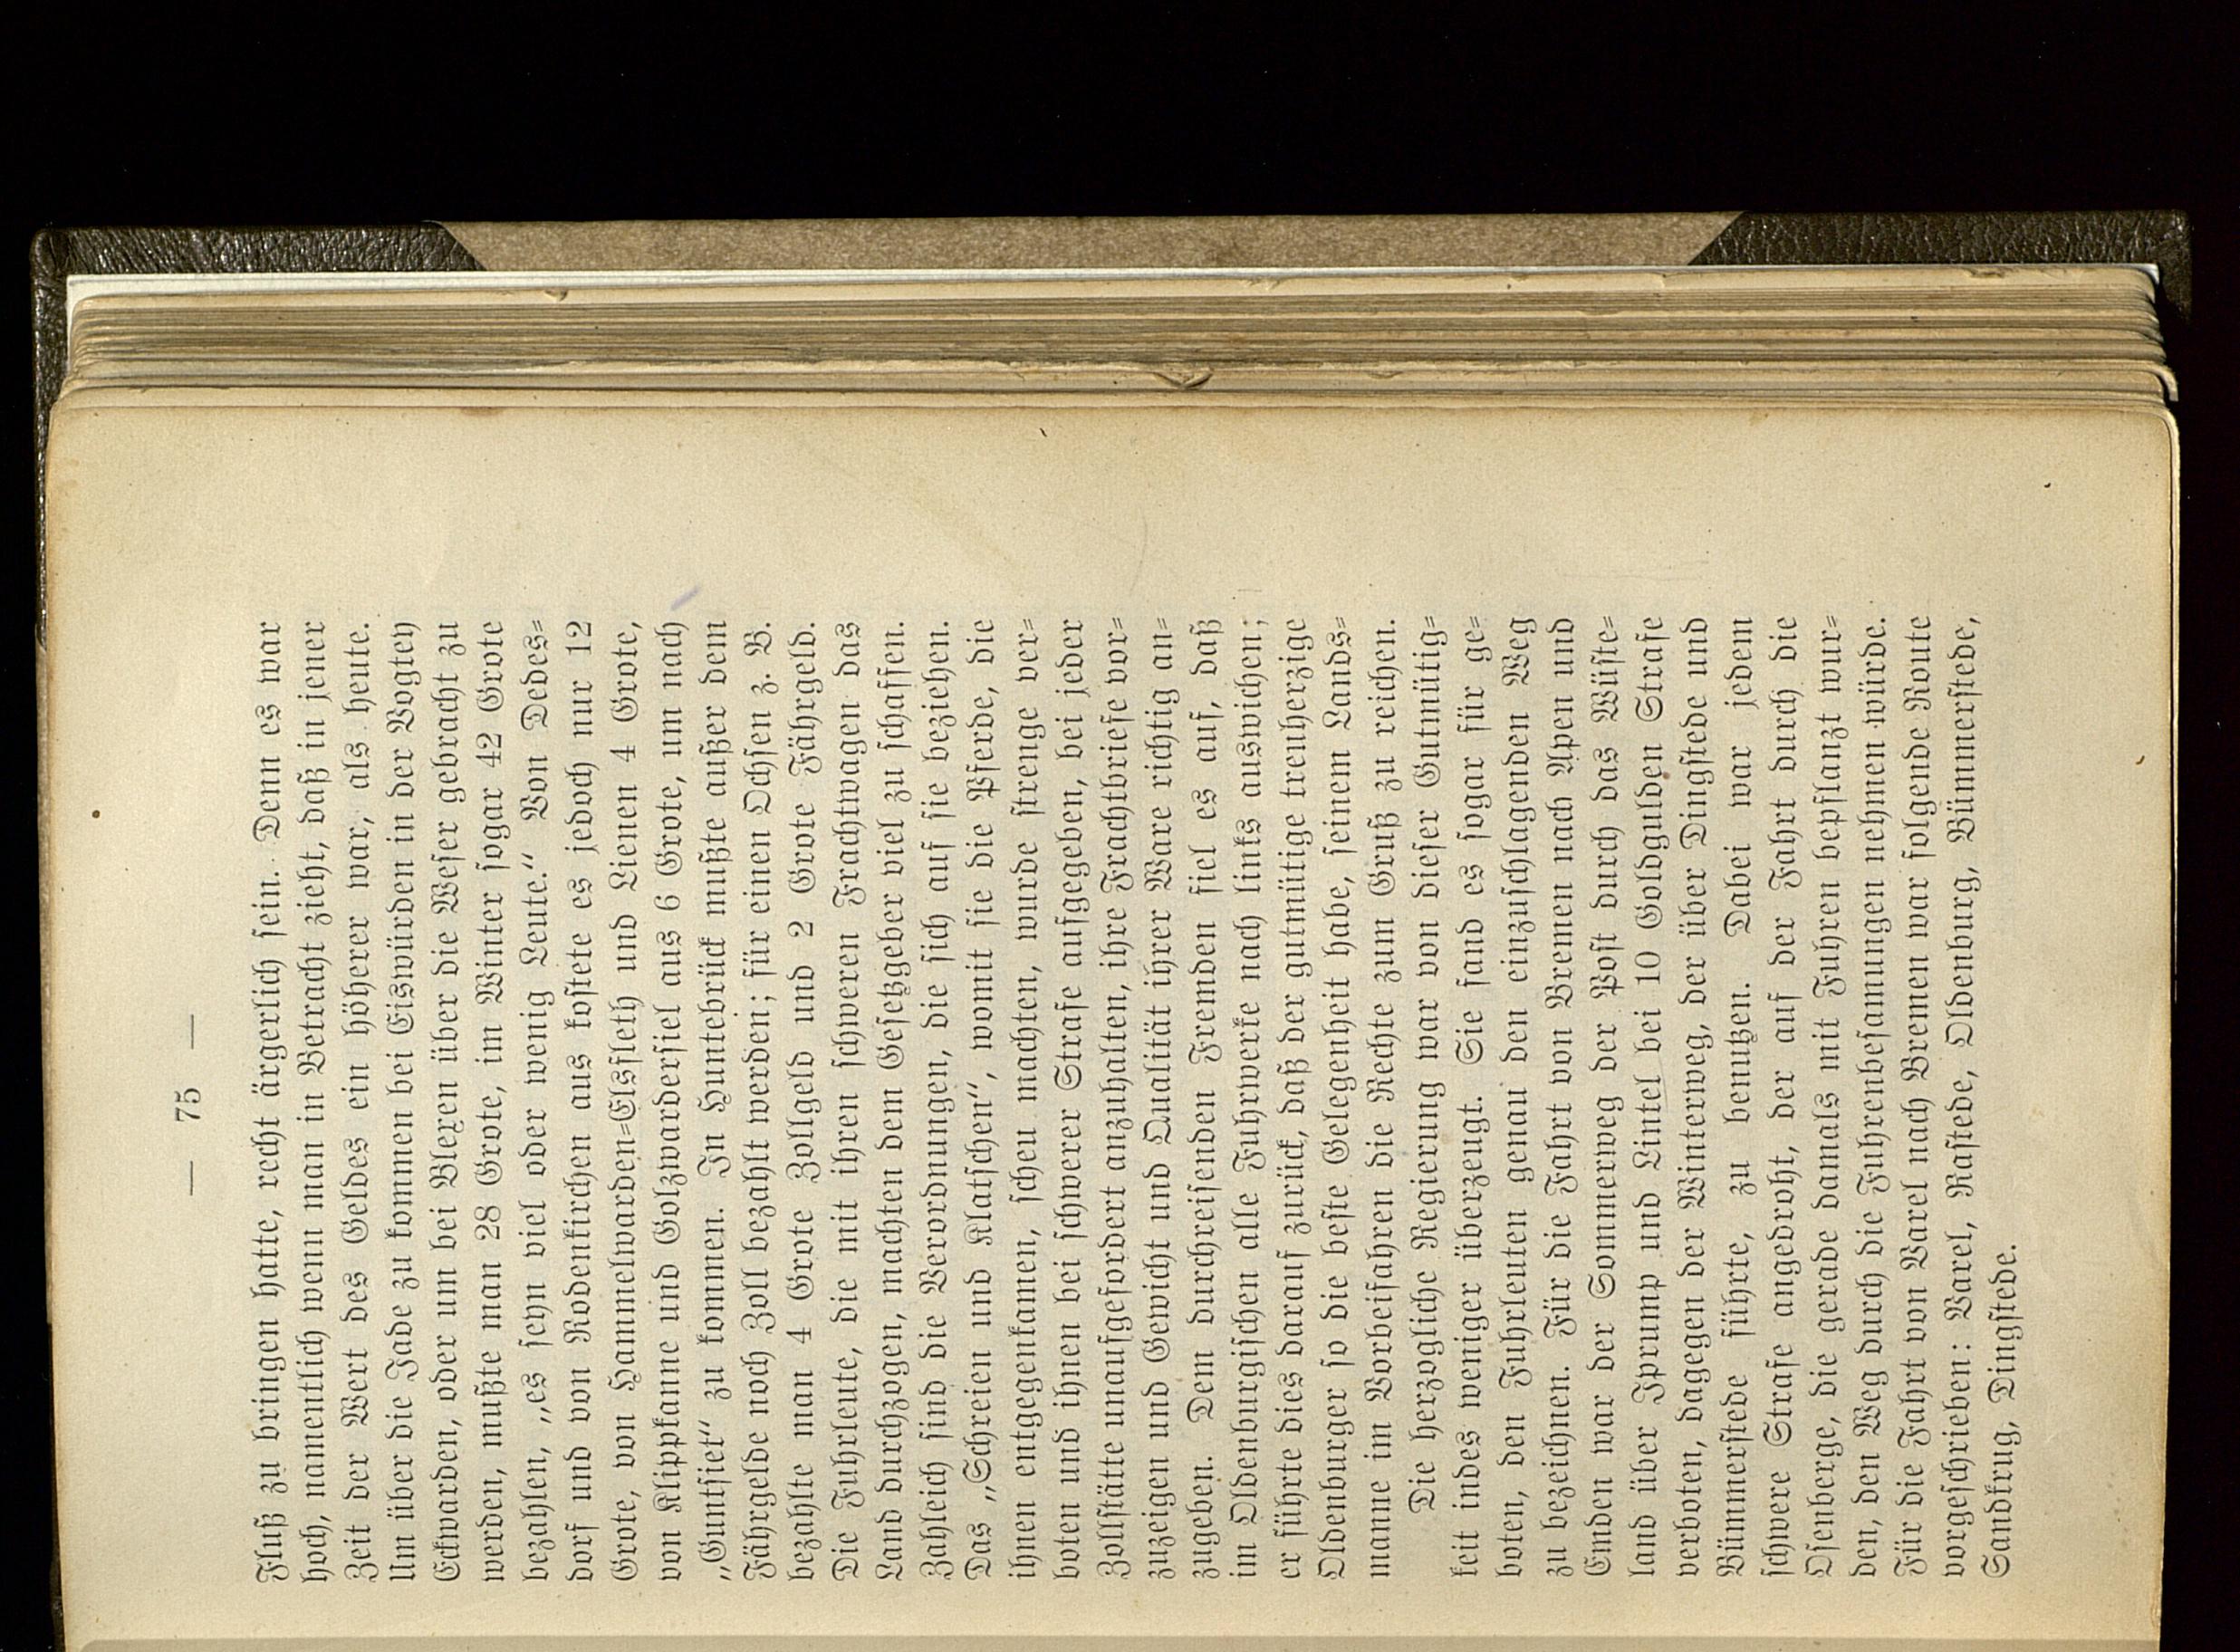 — 75 —
Fluß zu bringen hatte, recht ärgerlich sein. Denn es war
hoch, namentlich wenn man in Betracht zieht, daß in jener
Zeit der Wert des Geldes ein höherer war, als heute.
Um über die Jade zu kommen bei Eiswürden in der Vogtey
Eckwarden, oder um bei Blexen über die Weser gebracht zu
werden, mußte man 28 Grote, im Winter sogar 42 Grote
bezahlen, „es seyn viel oder wenig Leute.“ Von Dedes-
dorf und von Rodenkirchen aus kostete es jedoch nur 12
Grote, von Hammelwarden-Elsfleth und Lienen 4 Grote,
von Klippkanne und Golzwardersiel aus 6 Grote, um nach
„Guntsiet“ zu kommen. In Huntebrück mußte außer dem
Fährgelde noch Zoll bezahlt werden; für einen Ochsen z. B.
bezahlte man 4 Grote Zollgeld und 2 Grote Fährgeld.
Die Fuhrleute, die mit ihren schweren Frachtwagen das
Land durchzogen, machten dem Gesetzgeber viel zu schaffen.
Zahlreich sind die Verordnungen, die sich auf sie beziehen.
Das „Schreien und Klatschen“, womit sie die Pferde, die
ihnen entgegenkamen, scheu machten, wurde strenge ver-
boten und ihnen bei schwerer Strafe aufgegeben, bei jeder
Zollstätte unaufgefordert anzuhalten, ihre Frachtbriefe vor-
zuzeigen und Gewicht und Qualität ihrer Ware richtig an-
zugeben. Dem durchreisenden Fremden fiel es auf, daß
im Oldenburgischen alle Fuhrwerke nach links auswichen;
er führte dies darauf zurück, daß der gutmütige treuherzige
Oldenburger so die beste Gelegenheit habe, seinem Lands-
manne im Vorbeifahren die Rechte zum Gruß zu reichen.
Die herzogliche Regierung war von dieser Gutmütig-
keit indes weniger überzeugt. Sie fand es sogar für ge-
boten, den Fuhrleuten genau den einzuschlagenden Weg
zu bezeichnen. Für die Fahrt von Bremen nach Apen und
Emden war der Sommerweg der Post durch das Wüste-
land über Iprump und Lintel bei 10 Goldgulden Strafe
verboten, dagegen der Winterweg, der über Dingstede und
Bümmerstede führte, zu benutzen. Dabei war jedem
schwere Strafe angedroht, der auf der Fahrt durch die
Osenberge, die gerade damals mit Fuhren bepflanzt wur-
den, den Weg durch die Fuhrenbesamungen nehmen würde.
Für die Fahrt von Varel nach Bremen war folgende Route
vorgeschrieben: Varel, Rastede, Oldenburg, Bümmerstede,
Sandkrug, Dingstede.